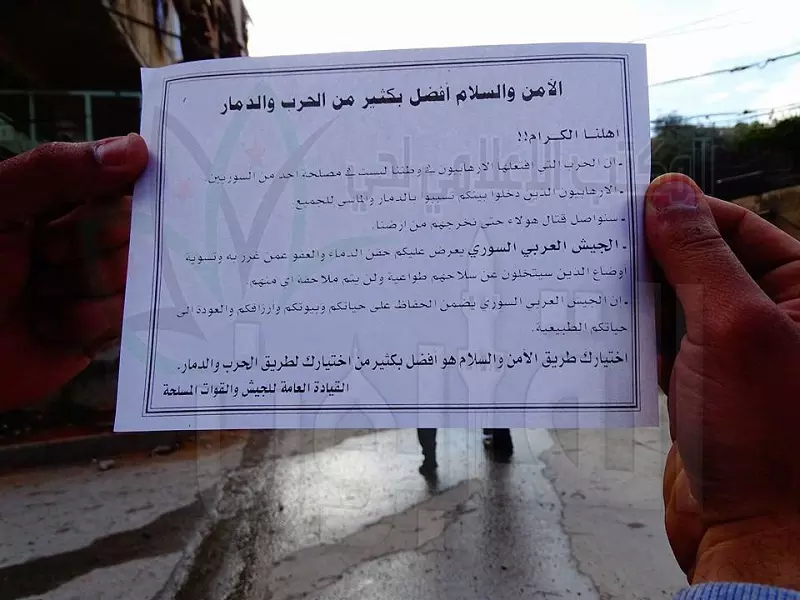 الأمن والسلام أفضل بكثير من الحرب والدمار
اهلنا الكرام!!
- ان الحرب التي افتعلها الارهابيون في وطننا ليست في مصلحة احد من السوريين.
- الارهابيون الذين دخلوا بينكم تسببوا بالدمار والماسي للجميع.
- سنواصل قتال هولاء حتى نخرجهم من ارضنا.
- الجيش العربي السوري يعرض عليكم حقن الدماء والعفو عمن غرر به وتسوية
اوضاع الذين سيتخلون عن سلاحهم طواعية ولن يتم ملاحقة اي منهم.
- ان الجيش العربي السوري يضمن الحفاظ على حياتكم وبيوتكم وارزاقكم والعودة الى
حياتكم الطبيعية.
اختيارك طريق الأمن والسلام هو افضل بكثير من اختيارك لطريق الحرب والدمار.
القيادة العامة للجيش والقوات المسلحة